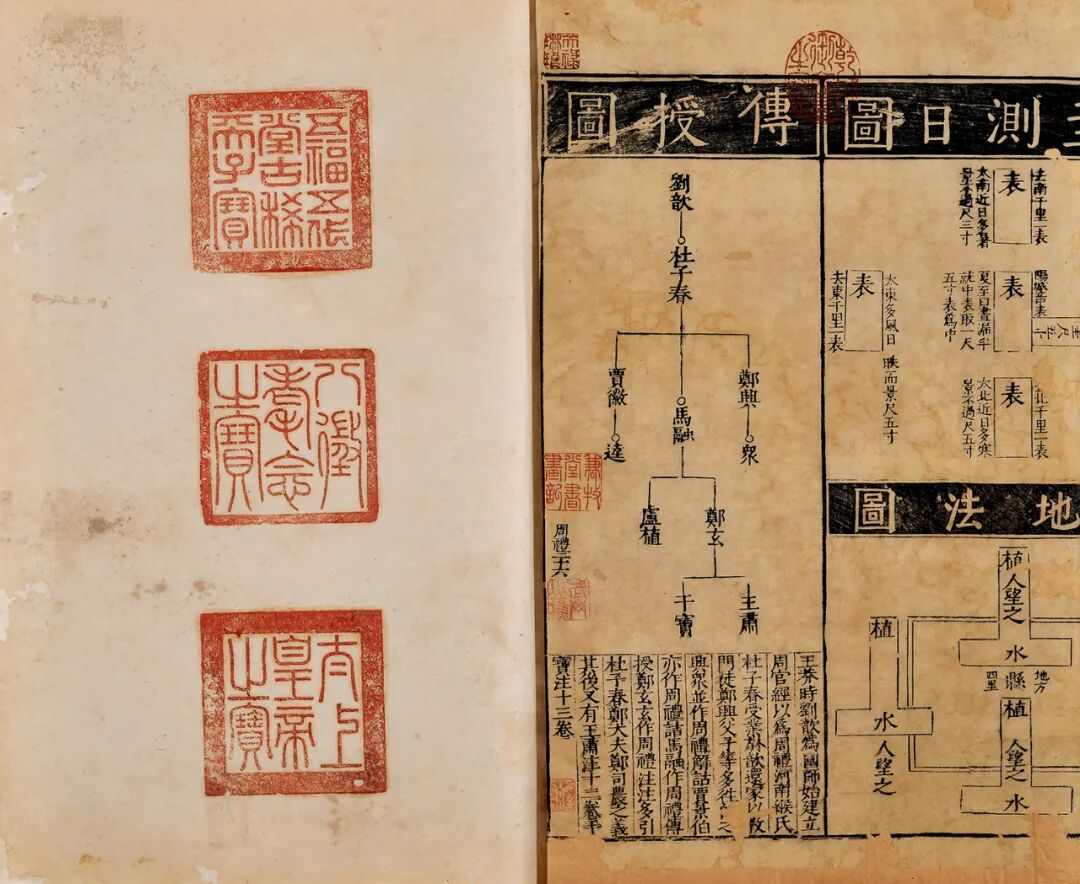 五福五代
堂古稀
天子寶
八徵
耄念
之寶
太上
皇帝
之寶
測日圖
去南千里一表
表
太南近日多暑
景不過尺三寸
表
夏至日晝漏半
就中表取一尺
五寸表爲中
北千里一表
表
太北近日多寒
景不過尺五寸
太東多風日
景尺五寸
表
去東千里一表
地法圖
植
人望之
水
地方
四里
縣
植
人望之
水
植
水
人望之
傳授圖
劉歆
杜子春
鄭興
眾
馬融
賈徽
逵
鄭玄
盧植
王肅
干寶
王莽時劉歆爲國師始建立
周官經以爲周禮河南緱氏
杜子春受業於歆還家以教
門徒鄭興父子等多往
興眾並作周禮解詁賈景伯
亦作周禮詁馬融作周禮傳
授鄭玄玄作周禮注注多引
杜子春鄭大夫鄭司農之義
其後又有王肅注十二卷干
寶注十三卷
天祿
琳琅
謙牧
堂書
畫記